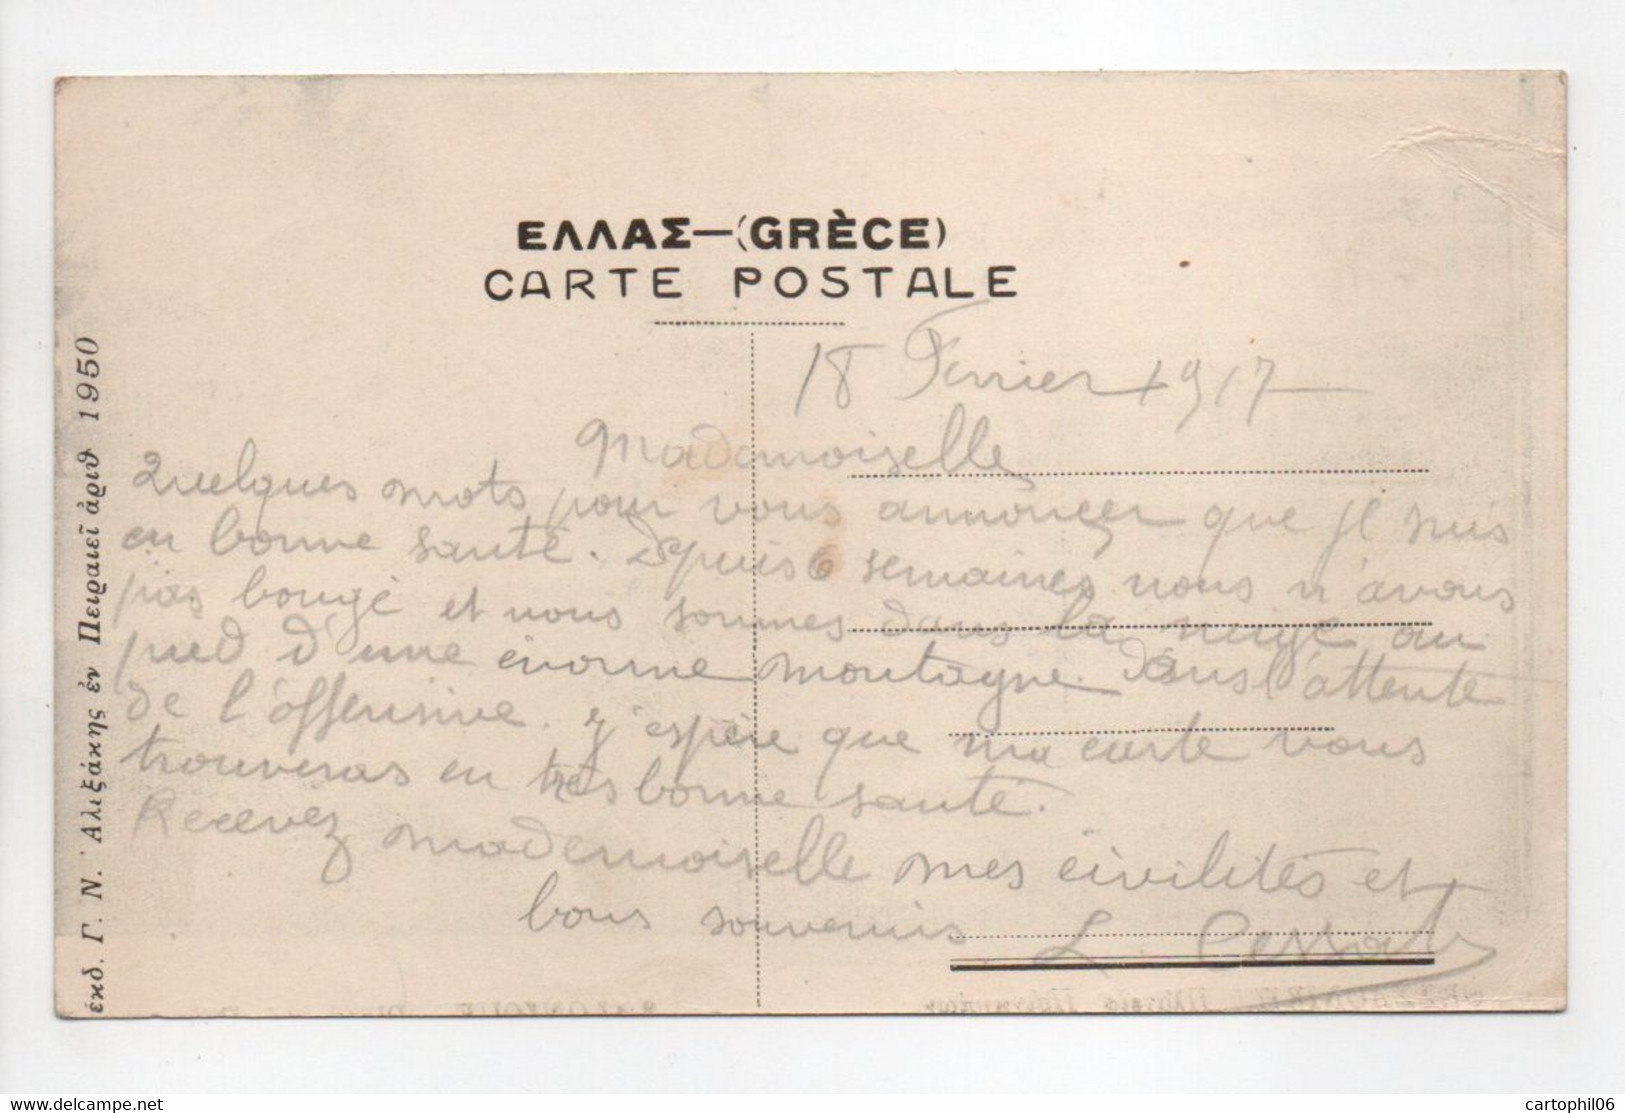 ΕΛΛΑΣ—(GRÈCE)
CARTE POSTALE
18 Fevrier 1917
Mademoiselle
Quelques mots pour vous annoncer que je suis
en bonne santé. Depuis 6 semaines nous n'avons
pas bougé et nous sommes dans la neige au
pied d'une énorme montagne dans l'attente
de l'offensive. J'espère que ma carte vous
trouveras en très bonne santé.
Recevez mademoiselle mes civilités et
bons souvenirs
L.
ἐκδ. Γ. Ν. Ἀλεξάκης ἐν Πειραιεῖ ἀριθ 1950
cartophil06